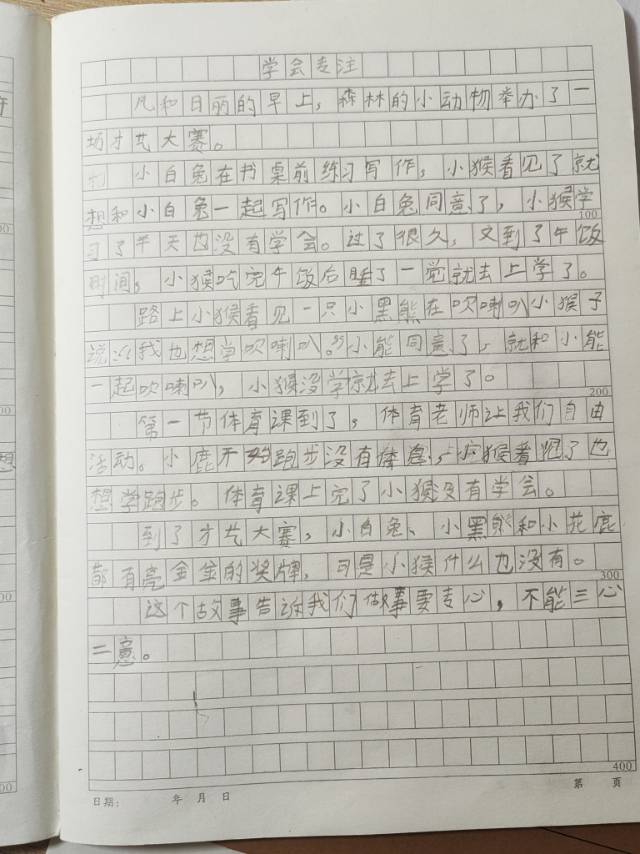 学会专注
风和日丽的早上，森林的小动物举办了一
场才艺大赛。
小白兔在书桌前练习写作，小猴看见了就
想和小白兔一起写作。小白兔同意了，小猴学
100
习了半天也没有学会。过了很久，又到了午饭
时间，小猴吃完午饭后睡了一觉就去上学了。
路上小猴看见一只小黑熊在吹喇叭小猴子
说：“我也想学吹喇叭。”小熊同意了，就和小熊
一起吹喇叭，小猴没学就去上学了。
200
第一节体育课到了，体育老师让我们自由
活动。小鹿开始跑步没有休息，小猴看见了也
想学跑步。体育课上完了小猴没有学会。
到了才艺大赛，小白兔、小黑熊和小花鹿
都有亮金金的奖牌，可是小猴什么也没有。
300
这个故事告诉我们做事要专心，不能三心
二意。
400
日期： 年 月 日 第 页